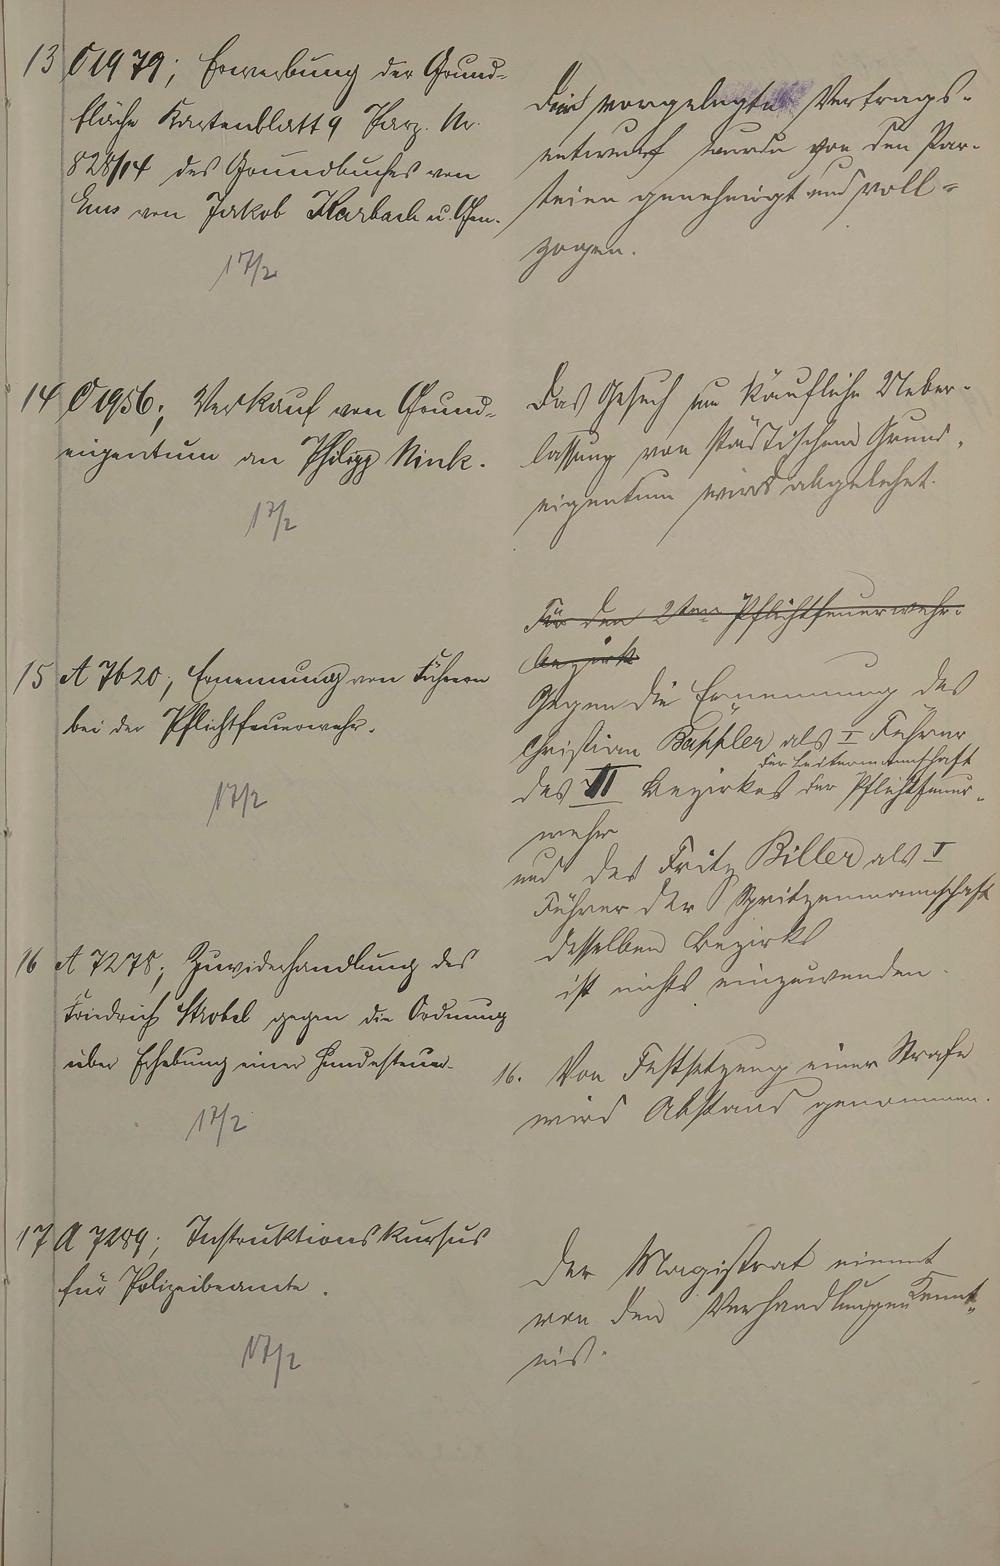 13 O 1979; Erwerbung der Grund-
fläche Kartenblatt 9 Parz. Nr.
828/14 des Grundbuches von
Ems von Jakob Karbach u. Gen.
17/2
vorgelegte Vertrags-
entwurf wurde von den Par-
teien genehmigt und voll-
zogen.
14 O 1956; Verkauf von Grund-
eigentum an Philipp Nink.
17/2
Das Gesuch um käufliche Ueber-
lassung von städtischem Grund-
eigentum wird abgelehnt.
Für den 2ten Pflichtfeuerwehr-
bezirk
15 A 7620; Ernennung von Führern
bei der Pflichtfeuerwehr.
17/2
Gegen die Ernennung des
Christian Bäppler als I Führer
der Leitermannschaft
des II Bezirkes der Pflichtfeuer-
wehr
und des Fritz Biller als I
Führer der Spritzenmannschaft
desselben Bezirks
ist nichts einzuwenden.
16 A 7278; Zuwiderhandlung des
Friedrich Strobel gegen die Ordnung
über Erhebung einer Hundesteuer.
17/2
16. Von Festsetzung einer Strafe
wird Abstand genommen.
17 A 7289; Instruktionskursus
für Polizeibeamte.
17/2
Der Magistrat nimmt
von den Verhandlungen Kennt-
nis.